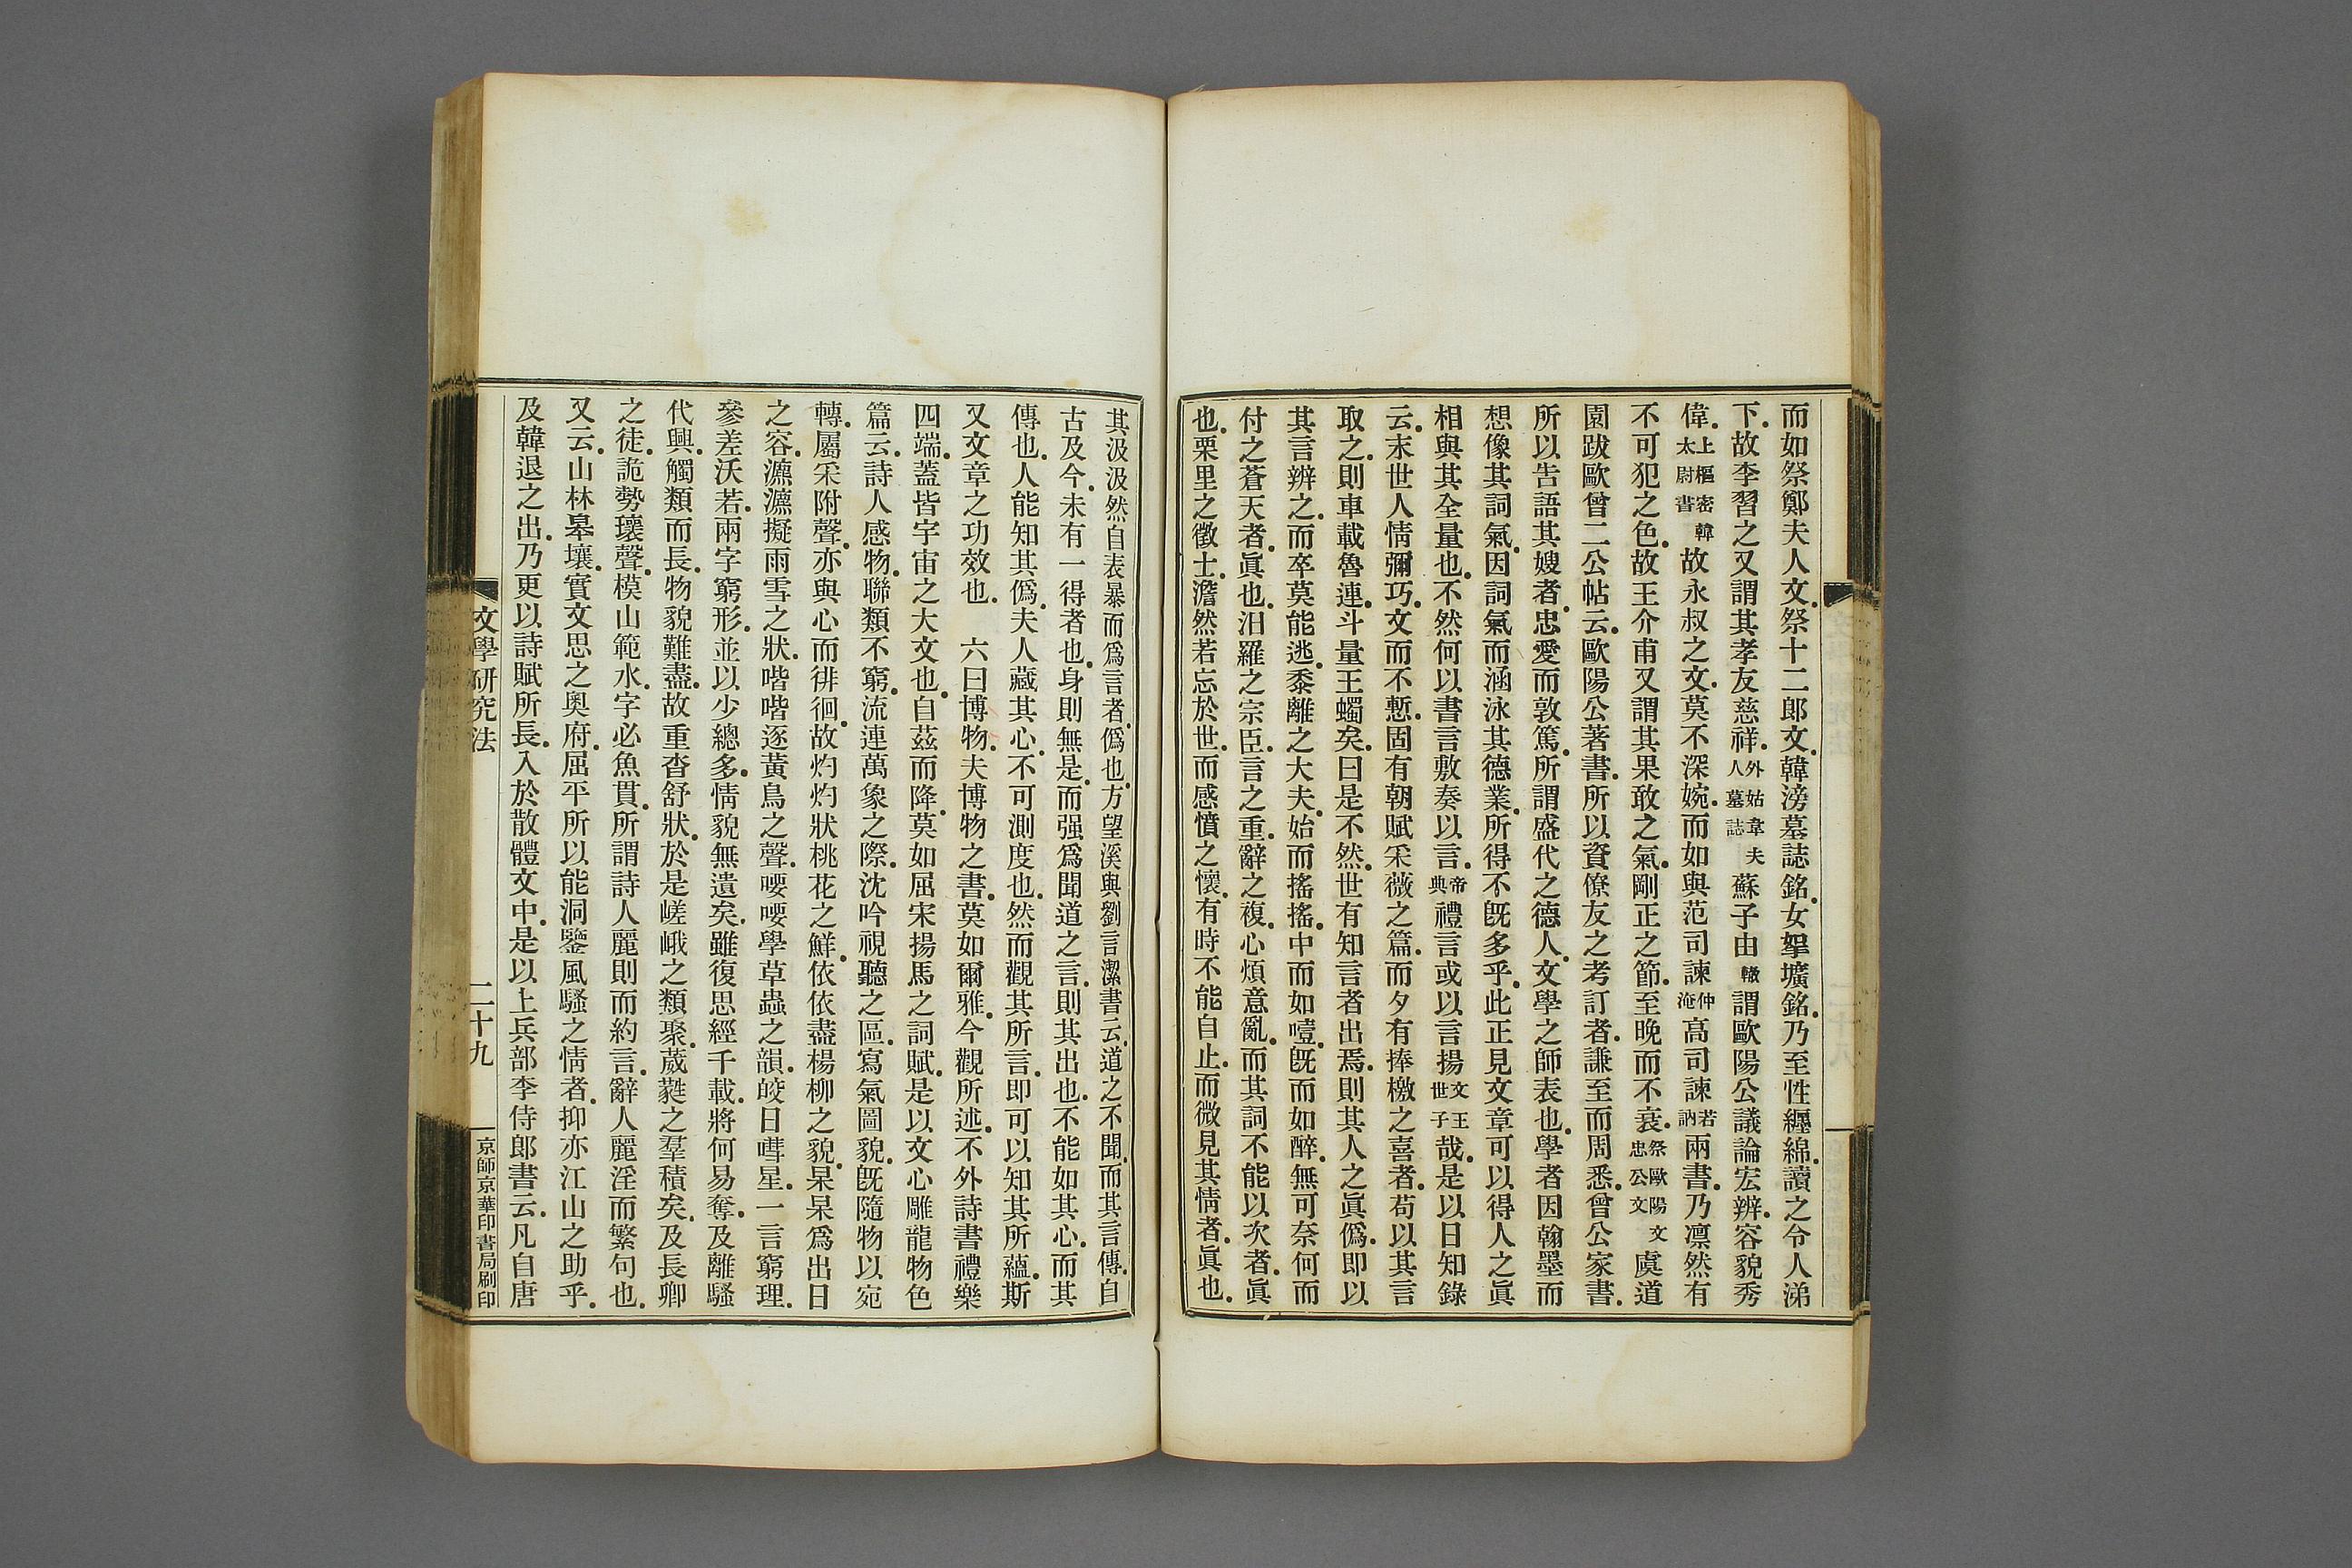 而如祭鄭夫人文.祭十二郎文.韓滂墓誌銘.女挐壙銘.乃至性纏綿.讀之令人涕
下.故李習之又謂其孝友慈祥.外姑韋夫人墓誌蘇子由轍謂歐陽公議論宏辨.容貌秀
偉.上樞密韓太尉書故永叔之文.莫不深婉.而如與范司諫仲淹高司諫若訥兩書.乃凛然有
不可犯之色.故王介甫又謂其果敢之氣.剛正之節.至晚而不衰.祭歐陽文忠公文虞道
園跋歐曾二公帖云.歐陽公著書.所以資僚友之考訂者.謙至而周悉.曾公家書.
所以告語其嫂者.忠愛而敦篤.所謂盛代之德人.文學之師表也.學者因翰墨而
想像其詞氣.因詞氣而涵泳其德業.所得不既多乎.此正見文章可以得人之眞
相與其全量也.不然何以書言敷奏以言.帝典禮言或以言揚文王世子哉.是以日知錄
云.末世人情彌巧.文而不慙.固有朝賦采薇之篇.而夕有捧檄之喜者.苟以其言
取之.則車載魯連.斗量王蠋矣.曰是不然.世有知言者出焉.則其人之眞僞.即以
其言辨之.而卒莫能逃.黍離之大夫.始而搖搖.中而如噎.既而如醉.無可奈何而
付之蒼天者.眞也.汨羅之宗臣.言之重.辭之複.心煩意亂.而其詞不能以次者.眞
也.栗里之徵士.澹然若忘於世.而感憤之懷.有時不能自止.而微見其情者.眞也.
其汲汲然自表暴而爲言者.僞也.方望溪與劉言潔書云.道之不聞.而其言傳.自
古及今.未有一得者也.身則無是.而强爲聞道之言.則其出也.不能如其心.而其
傳也.人能知其僞.夫人藏其心.不可測度也.然而觀其所言.即可以知其所蘊.斯
又文章之功效也.　六曰博物.夫博物之書.莫如爾雅.今觀所述.不外詩書禮樂
四端.蓋皆宇宙之大文也.自茲而降.莫如屈宋揚馬之詞賦.是以文心雕龍物色
篇云.詩人感物.聯類不窮.流連萬象之際.沈吟視聽之區.寫氣圖貌.既隨物以宛
轉.屬采附聲.亦與心而徘徊.故灼灼狀桃花之鮮.依依盡楊柳之貌.杲杲爲出日
之容.瀌瀌擬雨雪之狀.喈喈逐黃鳥之聲.喓喓學草蟲之韻.皎日嘒星.一言窮理.
參差沃若.兩字窮形.並以少總多.情貌無遺矣.雖復思經千載.將何易奪.及離騷
代興.觸類而長.物貌難盡.故重沓舒狀.於是嵯峨之類聚.葳蕤之羣積矣.及長卿
之徒.詭勢瓌聲.模山範水.字必魚貫.所謂詩人麗則而約言.辭人麗淫而繁句也.
又云.山林皋壤.實文思之奧府.屈平所以能洞鑒風騷之情者.抑亦江山之助乎.
及韓退之出.乃更以詩賦所長.入於散體文中.是以上兵部李侍郎書云.凡自唐
文學研究法　二十九　京師京華印書局刷印